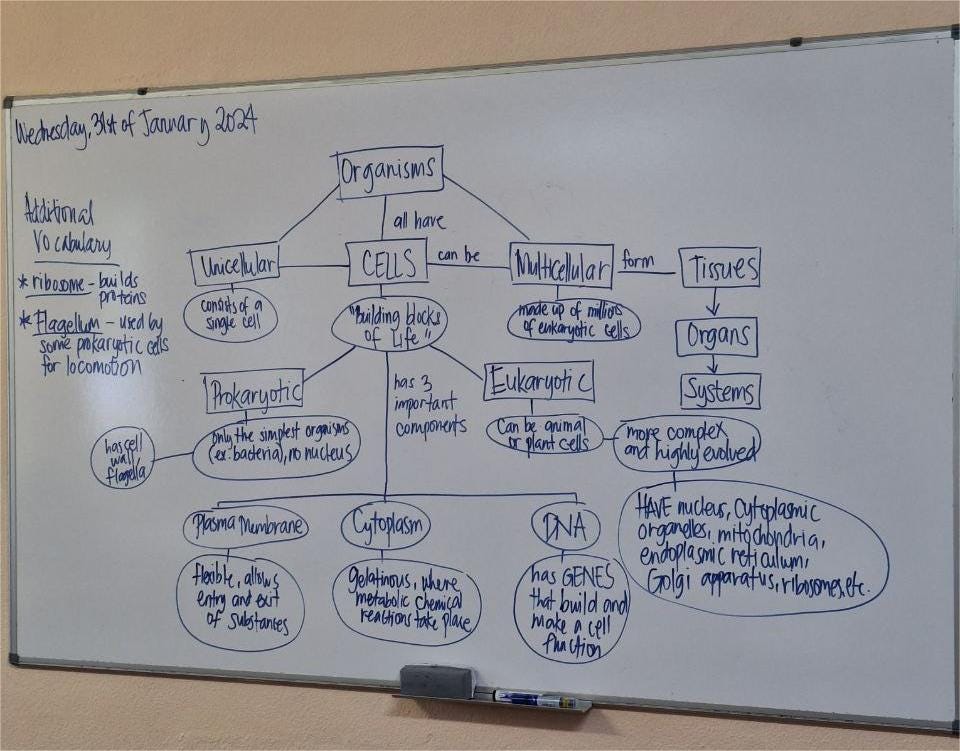 Wednesday, 31st of January 2024
Organisms
all have
Additional
Vocabulary
* ribosome - builds
proteins
* Flagellum - used by
some prokaryotic cells
for locomotion
Unicellular
CELLS
can be
Multicellular
form
Tissues
consists of a
single cell
"Building blocks
of Life"
made up of millions
of eukaryotic cells
Organs
Systems
Prokaryotic
has 3
important
components
Eukaryotic
only the simplest organisms
(ex: bacteria), no nucleus
has cell
wall,
flagella
Can be animal
or plant cells
more complex
and highly evolved
HAVE nucleus, cytoplasmic
organelles, mitochondria,
endoplasmic reticulum,
Golgi apparatus, ribosomes, etc.
Plasma Membrane
Cytoplasm
DNA
flexible, allows
entry and exit
of substances
gelatinous, where
metabolic chemical
reactions take place
has GENES
that build and
make a cell
function